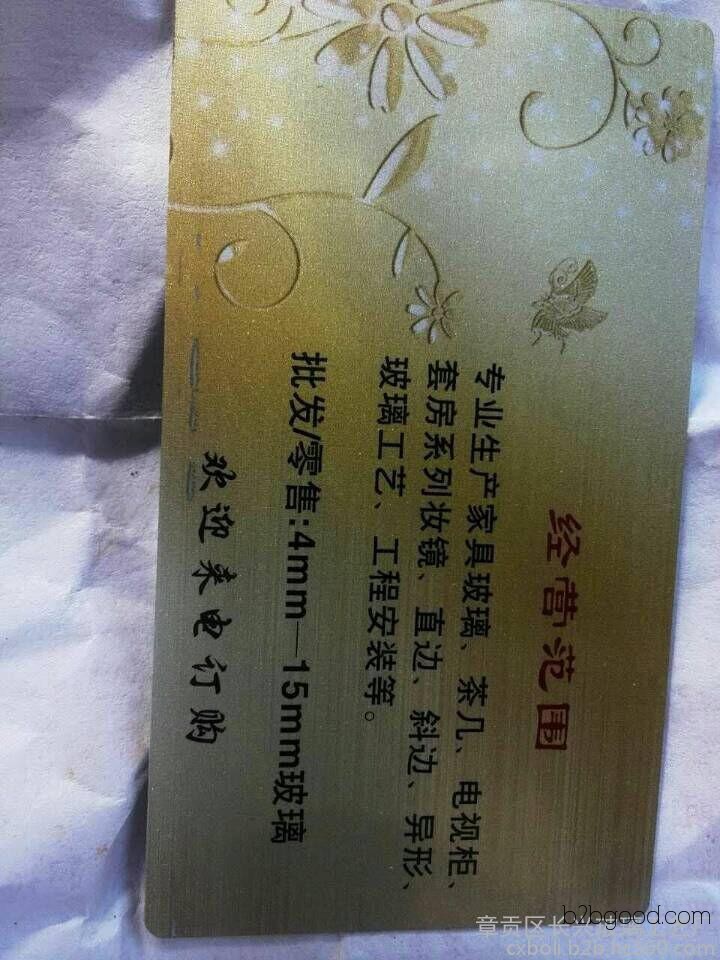 经营范围
专业生产家具玻璃、茶几、电视柜、
套房系列妆镜、直边、斜边、异形、
玻璃工艺、工程安装等。
批发/零售:4mm—15mm玻璃
欢迎来电订购
b2bgood.com
章贡区长